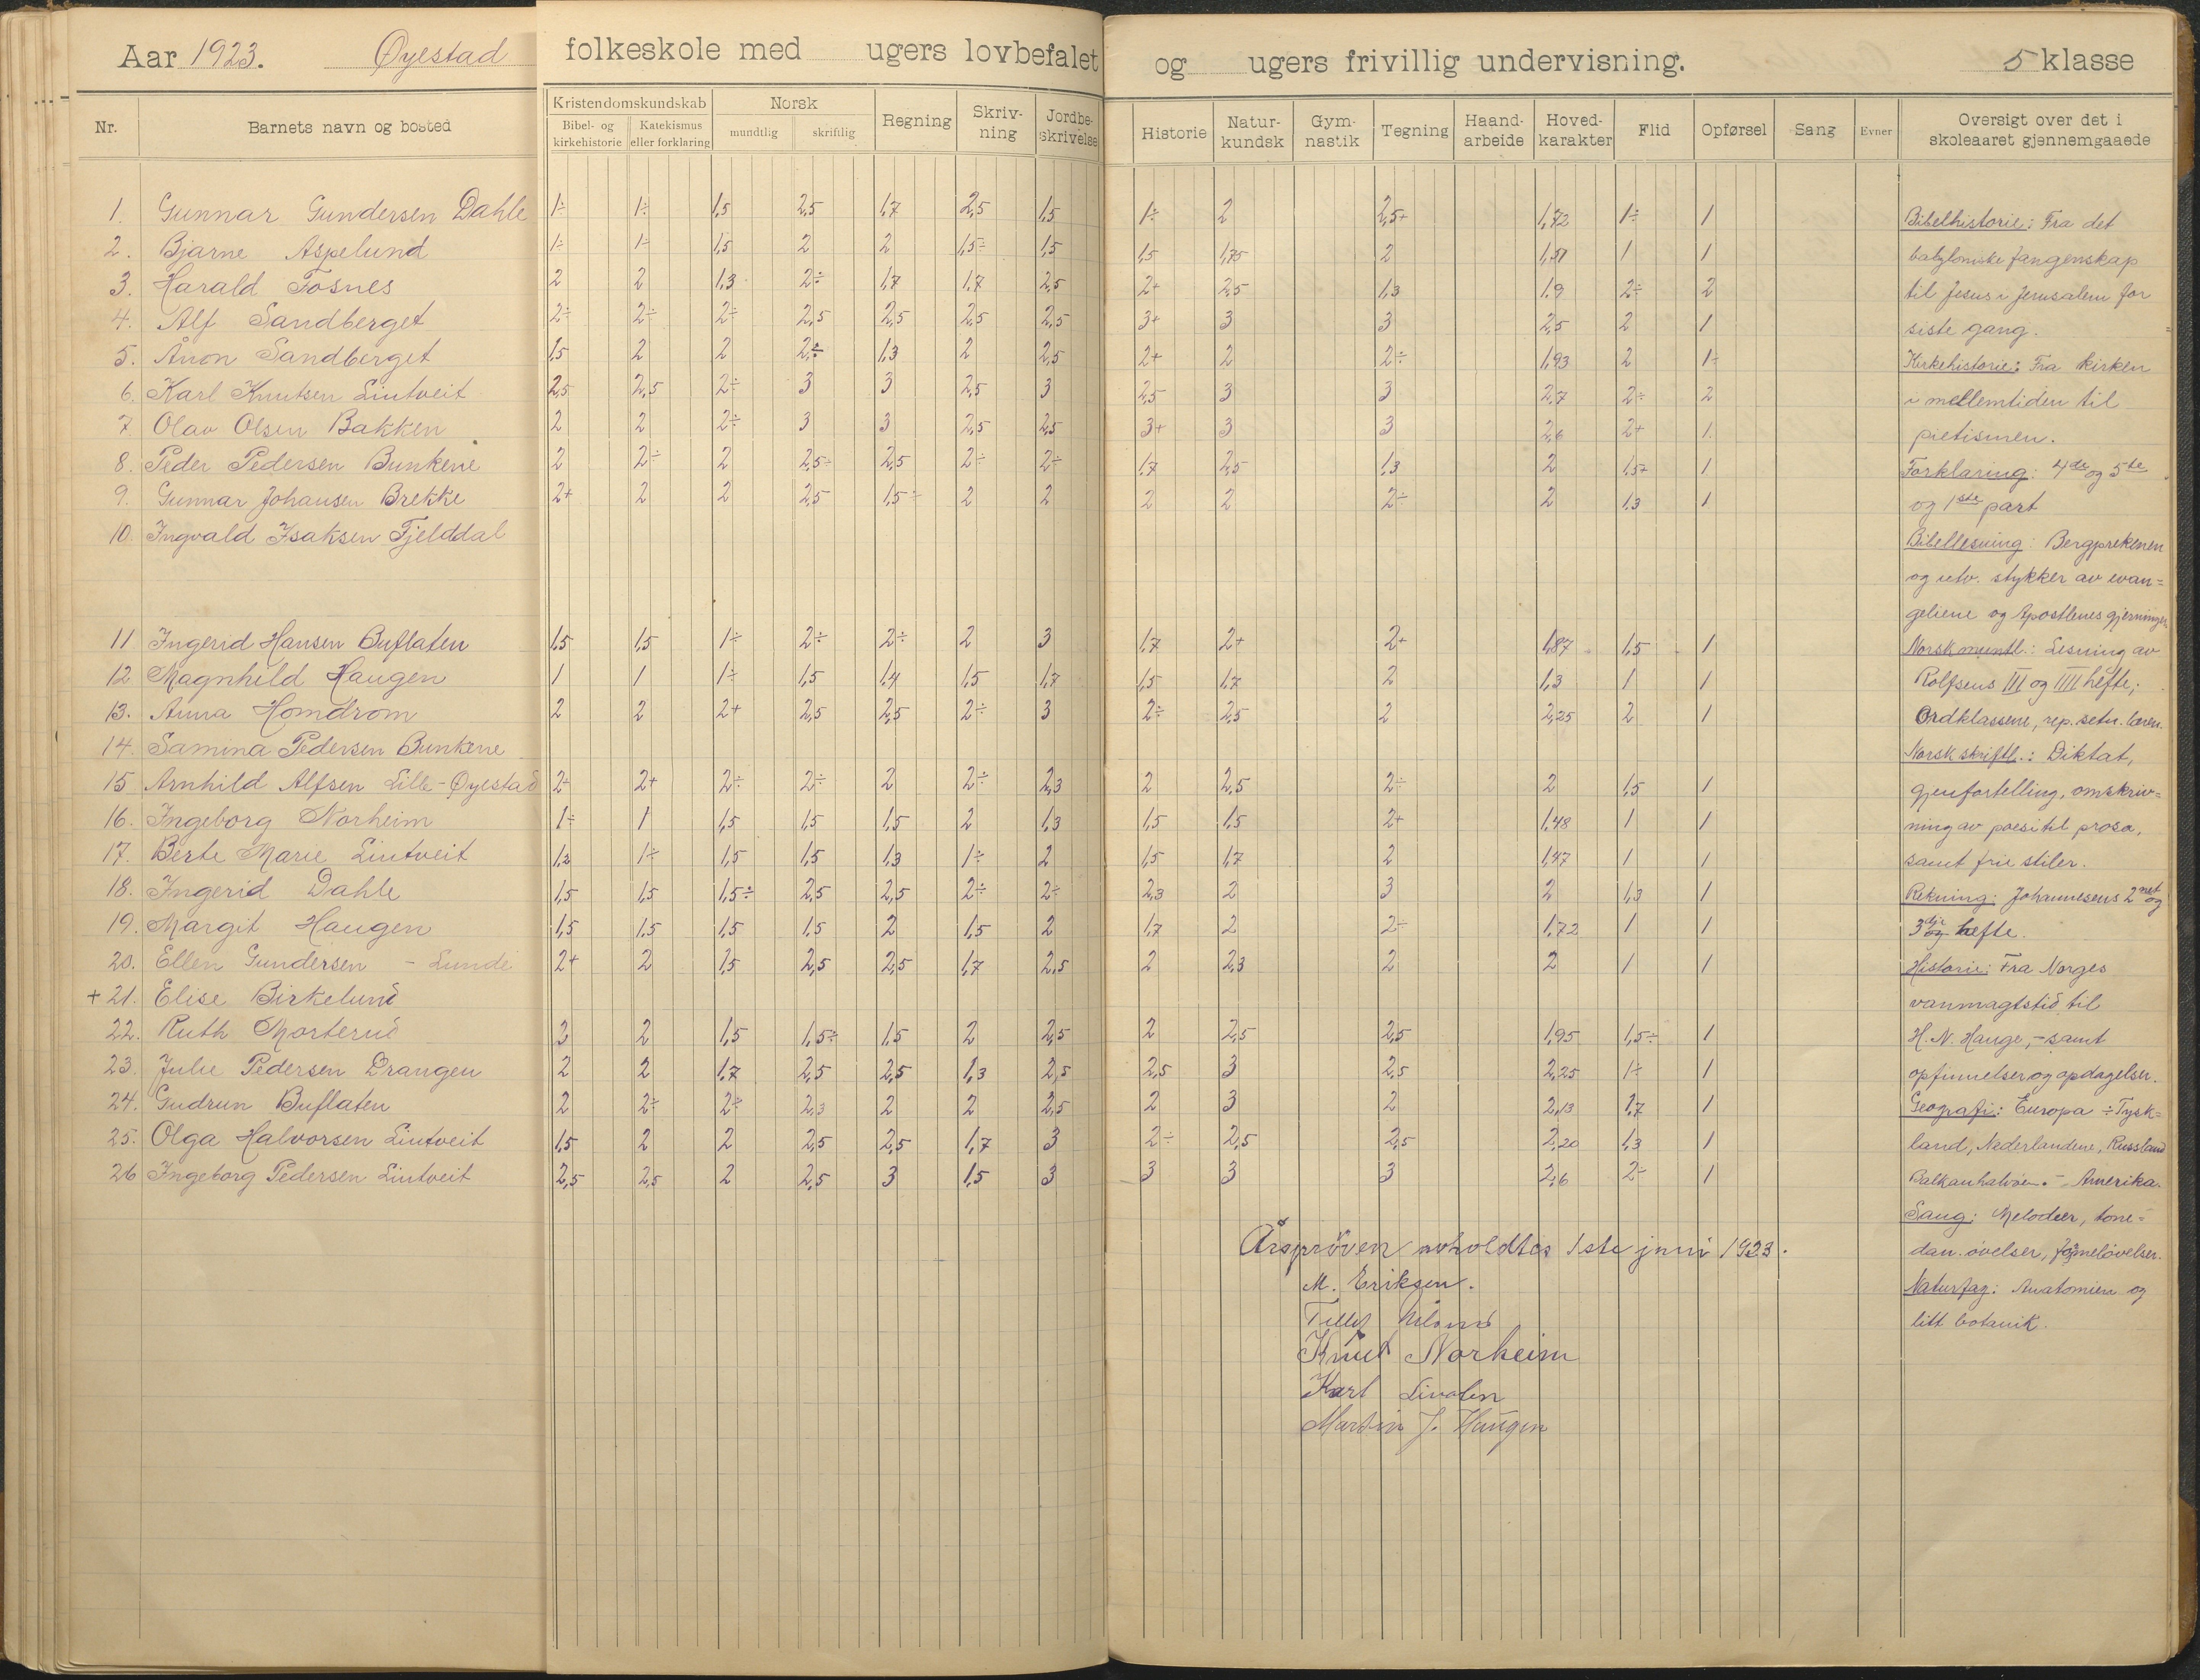 Aar 1923. Øyestad folkeskole med ugers lovbefalet og ugers frivillig undervisning. 5 klasse
Nr. Barnets navn og bosted Kristendomskundskab Bibel- og kirkehistorie Katekismus eller forklaring Norsk mundtlig skriftlig Regning Skriv-ning Jordbe-skrivelse Historie Natur-kundsk Gym-nastik Tegning Haand-arbeide Hoved-karakter Flid Opførsel Sang Evner Oversigt over det i skoleaaret gjennemgaaede
1. Gunnar Gundersen Dahle 1÷ 1÷ 1,5 2,5 1,7 2,5 1,5 1÷ 2 2,5+ 1,72 1÷ 1
2. Bjarne Aspelund 1÷ 1÷ 1,5 2 2 1,5÷ 1,5 1,5 1,75 2 1,51 1 1
3. Harald Fosnes 2 2 1,3 2÷ 1,7 1,7 2,5 2+ 2,5 1,3 1,9 2÷ 2
4. Alf Sandberget 2÷ 2÷ 2÷ 2,5 2,5 2,5 2,5 3+ 3 3 2,5 2 1
5. Ånon Sandberget 1,5 2 2 2÷ 1,3 2 2,5 2+ 2 2÷ 1,93 2 1÷
6. Karl Knutsen Lintveit 2,5 2,5 2÷ 3 3 2,5 3 2,5 3 3 2,7 2÷ 2
7 Olav Olsen Bakken 2 2 2÷ 3 3 2,5 2,5 3+ 3 3 2,6 2+ 1.
8. Peder Pedersen Bunkene 2 2÷ 2 2,5÷ 2,5 2÷ 2÷ 1,7 2,5 1,3 2 1,5+ 1
9. Gunnar Johansen Brekke 2+ 2 2 2,5 1,5÷ 2 2 2 2 2÷ 2 1,3 1
10. Ingvald Isaksen Fjelddal
11 Ingerid Hansen Buflaten 1,5 1,5 1÷ 2÷ 2÷ 2 3 1,7 2+ 2+ 1,87 1,5 1
12 Magnhild Haugen 1 1 1÷ 1,5 1,4 1,5 1,7 1,5 1,7 2 1,3 1 1
13. Anna Homdrom 2 2 2+ 2,5 2,5 2÷ 3 2÷ 2,5 2 2,25 2 1
14. Samina Pedersen Bunkene
15 Arnhild Alfsen Lille-Øyestad 2÷ 2+ 2÷ 2÷ 2 2÷ 2,3 2 2,5 2÷ 2 1,5 1
16. Ingeborg Norheim 1÷ 1 1,5 1,5 1,5 2 1,3 1,5 1,5 2+ 1,48 1 1
17. Berte Marie Lintveit 1,2 1÷ 1,5 1,5 1,3 1÷ 2 1,5 1,7 2 1,47 1 1
18. Ingerid Dahle 1,5 1,5 1,5÷ 2,5 2,5 2÷ 2÷ 2,3 2 3 2 1,3 1
19. Margit Haugen 1,5 1,5 1,5 1,5 2 1,5 2 1,7 2 2÷ 1,72 1 1
20. Ellen Gundersen - Lunde 2+ 2 1,5 2,5 2,5 1,7 2,5 2 2,3 2 2 1 1
+ 21. Elise Birkelund
22. Ruth Morterud 2 2 1,5 1,5÷ 1,5 2 2,5 2 2,5 2,5 1,95 1,5÷ 1
23. Julie Pedersen Drangen 2 2 1,7 2,5 2,5 1,3 2,5 2,5 3 2,5 2,25 1÷ 1
24. Gudrun Buflaten 2 2÷ 2÷ 2,3 2 2 2,5 2 3 2 2,13 1,7 1
25. Olga Halvorsen Lintveit 1,5 2 2 2,5 2,5 1,7 3 2÷ 2,5 2,5 2,20 1,3 1
26 Ingeborg Pedersen Lintveit 2,5 2,5 2 2,5 3 1,5 3 3 3 3 2,6 2÷ 1
Årsprøven avholdtes 1ste juni 1923.
M. Eriksen.
Knut Norheim
Karl
Martin J. Haugen
Bibelhistorie: Fra det
babyloniske fangenskap
til Jesus i Jerusalem for
siste gang.
Kirkehistorie: Fra kirken
i mellemtiden til
pietismen.
Forklaring: 4de og 5te
og 1ste part
Bibellesning: Bergprekenen
og utv. stykker av evan=
geliene og Apostlenes gjerninger
Norsk muntl.: Lesning av
Rolfsens III og IIII hefte;
Ordklassene, rep. setn. læren.
Norsk skriftl.: Diktat,
gjenfortelling, omskriv=
ning av poesi til prosa,
samt frie stiler.
Rekning: Johannesens 2net og
3dje hefte.
Historie: Fra Norges
vanmagtstid til
H. N. Hauge, - samt
opfinnelser og opdagelser.
Geografi: Europa ÷ Tysk=
land, Nederlandene, Russland
Balkanhalvøen. - Amerika.
Sang: Melodier, tone=
dan. øvelser,
Naturfag: Anatomien og
litt botanik.